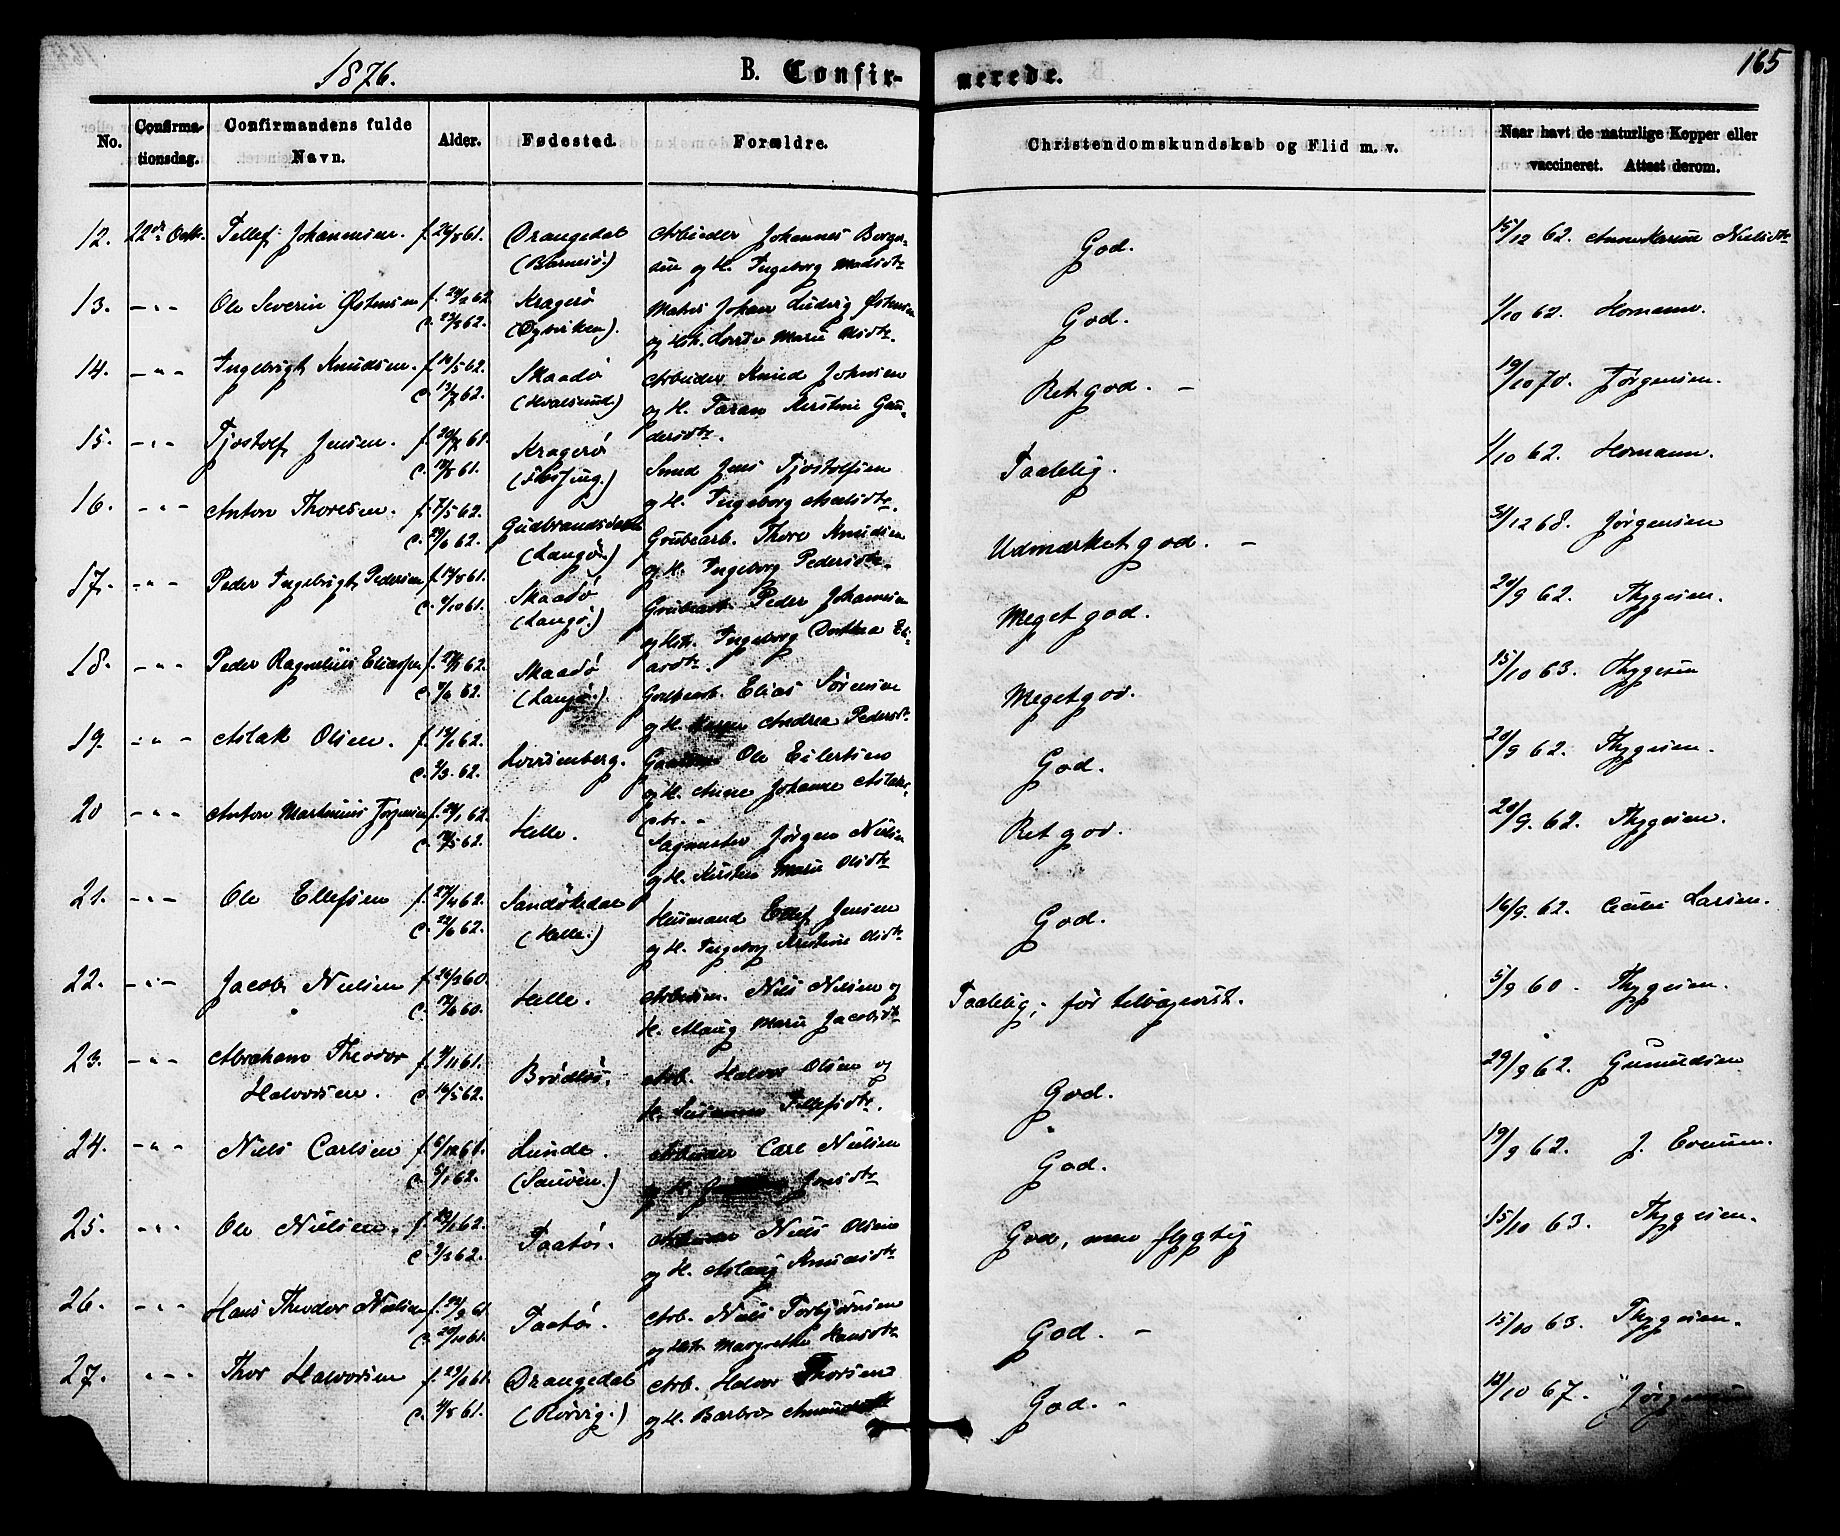 165
1876.
B. Confirmerede.
No.
Confirmationsdag.
Confirmandens fulde Navn.
Alder.
Fødested.
Forældre.
Christendomskundskab og Flid m. v.
Naar havt de naturlige Kopper eller vaccineret. Attest derom.
12. 22de Octbr. Tellef Johannesen. f. 26/8 61. Drangedal Arbeider Johannes God. 15/12 62. Anne Karine Nielsdtr
(Barnesø.) og H. Ingeborg Madsdtr
13. - " - Ole Severin Østensen f. 24/2 62. Kragerø Johan Ludvig Østensen God. 1/10 62. Homann.
c. 23/3 62. (Øysviken). og Marie Olsdtr.
14. - " - Ingebrigt Knudsen. f. 19/5 62. Skaadø Arbeider Knud Johnsen Ret god. - 19/10 70. Jørgensen.
c. 13/7 62. (Hvalsund.) og H. Taran Kirstine Gun-
dersdtr.
15. - " - Tjostolf Jensen. f. 20/7 61. Kragerø Smed Jens Tjostolfsen Taalelig. 1/10 62. Homann.
c. 18/8 61. og H. Ingeborg Axelsdtr.
16. - " - Anton Thoresen. f. 7/5 62. Gudbrandsdalen Grubearb. Thore Knudsen Udmærket god. - 31/12 68. Jørgensen
c. 29/6 62. (Langø.) og H. Ingeborg Pedersdtr.
17. - " - Peder Ingebrigt Pedersen f. 17/8 61. Skaadø Grubearb. Peder Johannesen Meget god. 20/9 62. Thygesen.
c. 6/10 61. (Langø.) og Hst. Ingeborg Dorthea Eli-
asdtr.
18. - " - Peder Ragnelius Eliassen 62. Skaadø Grubearb. Elias Sørensen Meget god. 15/10 63. Thygesen
62. (Langø.) og H. Karen Andrea Pedersdtr
19. - " - Aslak Olsen. f. 19/1 62. Lovisenberg. Ole Eilertsen God. 20/9 62. Thygesen.
c. 2/3. 62. og H. Anne Johanne Aslaks-
dtr. -
20 - " - Anton Martinius Jørgensen f. 24/1 62. Helle. Sagmester Jørgen Nielsen Ret god. 20/9. 62. Thygesen.
c. 18/5 62. og H. Kirsten Marie Olsdtr
21. - " - Ole Ellefsen f. 27/4 62. Sandøkedal Husmand Ellef Jensen God. 16/9. 62. Cecilie Larsen.
c. 22/6 62. (Helle.) og H. Ingeborg Kirstine Olsdtr
22. - " - Jacob Nielsen f. 26/3 60. Helle. Arbeidm. Niels Nielsen og Taalelig; før tilbagevist. 5/9 60. Thygesen.
c. 17/6 60. H. Aslaug Marie Jacobsdtr
23. - " - Abraham Theodor f. 9/11 61. Brødløs. Arb. Halvor Olsen og God. 29/9 62. Gumundsen
Halvorsen. c. 16/5 62. H. Susanne Tellefsdtr.
24. - " - Niels Carlsen f. 6/12 61. Lunde. Arbeider Carl Nielsen God. 19/9 62. J. Evensen.
c. 5/1 62. og H. Jensdtr
25. - " - Ole Nielsen. f. 19/1 62. Taatø. Arbeider Niels Olsen God, men flygtig 15/10 63. Thygesen.
c. 9/3 62. og H. Aslaug Knudsdtr
26. - " - Hans Theodor Nielsen f. 22/9 61. Taatø. Arb. Niels Torbjørnsen God. - 15/10 63. Thygesen.
c. 20/10 61. og Hst. Margrethe Hansdtr
27. - " - Thor Halvorsen f. 29/6 61. Drangedal Arb. Halvor Thorsen God. - 12/10 67. Jørgensen
c. 4/8 61. (Rørvig.) og H. Barbro